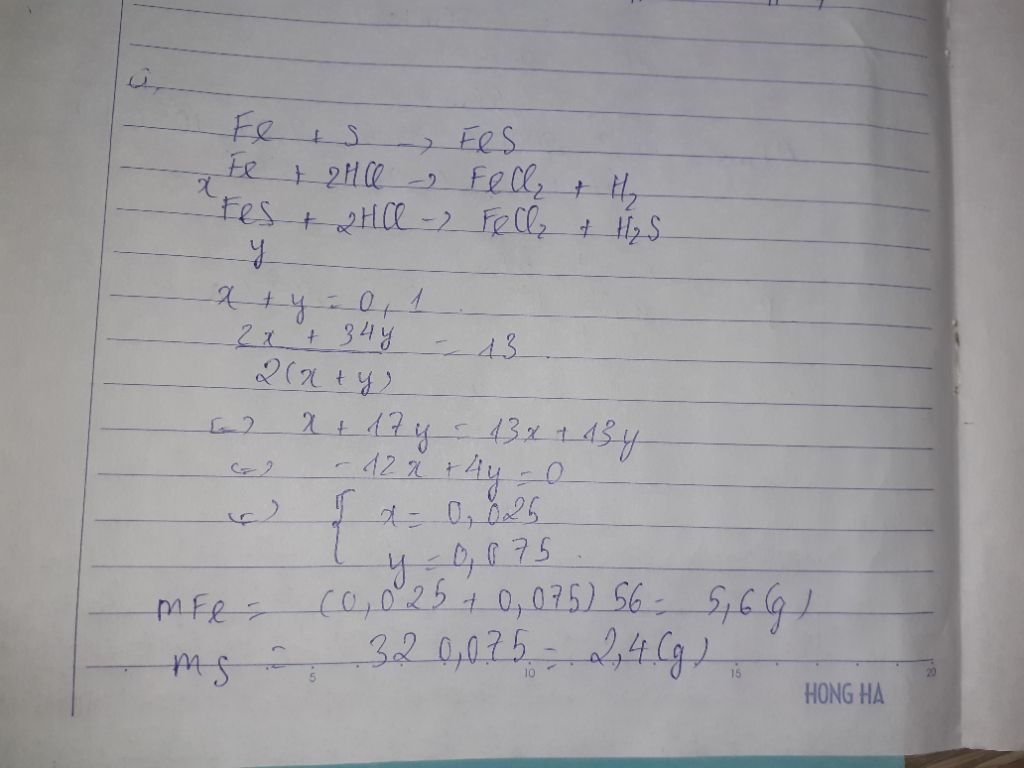 a,
Fe + S → FeS
Fe + 2HCl → FeCl2 + H2
x
FeS + 2HCl → FeCl2 + H2S
y
x + y = 0,1
2x + 34y = 13
2(x + y)
<=> x + 17y = 13x + 13y
<=> -12x + 4y = 0
<=> { x = 0,025
y = 0,075
mFe = (0,025 + 0,075) 56 = 5,6 (g)
mS = 32 0,075 = 2,4 (g)
5 10 15 20
HONG HA